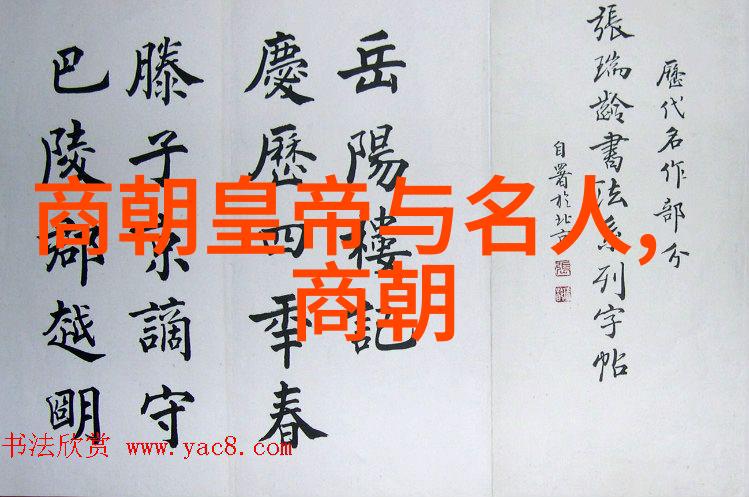 歷代名作部分
張瑞齡書法系列字帖
自署於北京
岳陽樓記
慶歷四年春
滕子京謫守
巴陵郡越明
商朝皇帝与名人,
商朝
书法欣赏 www.yac8.com